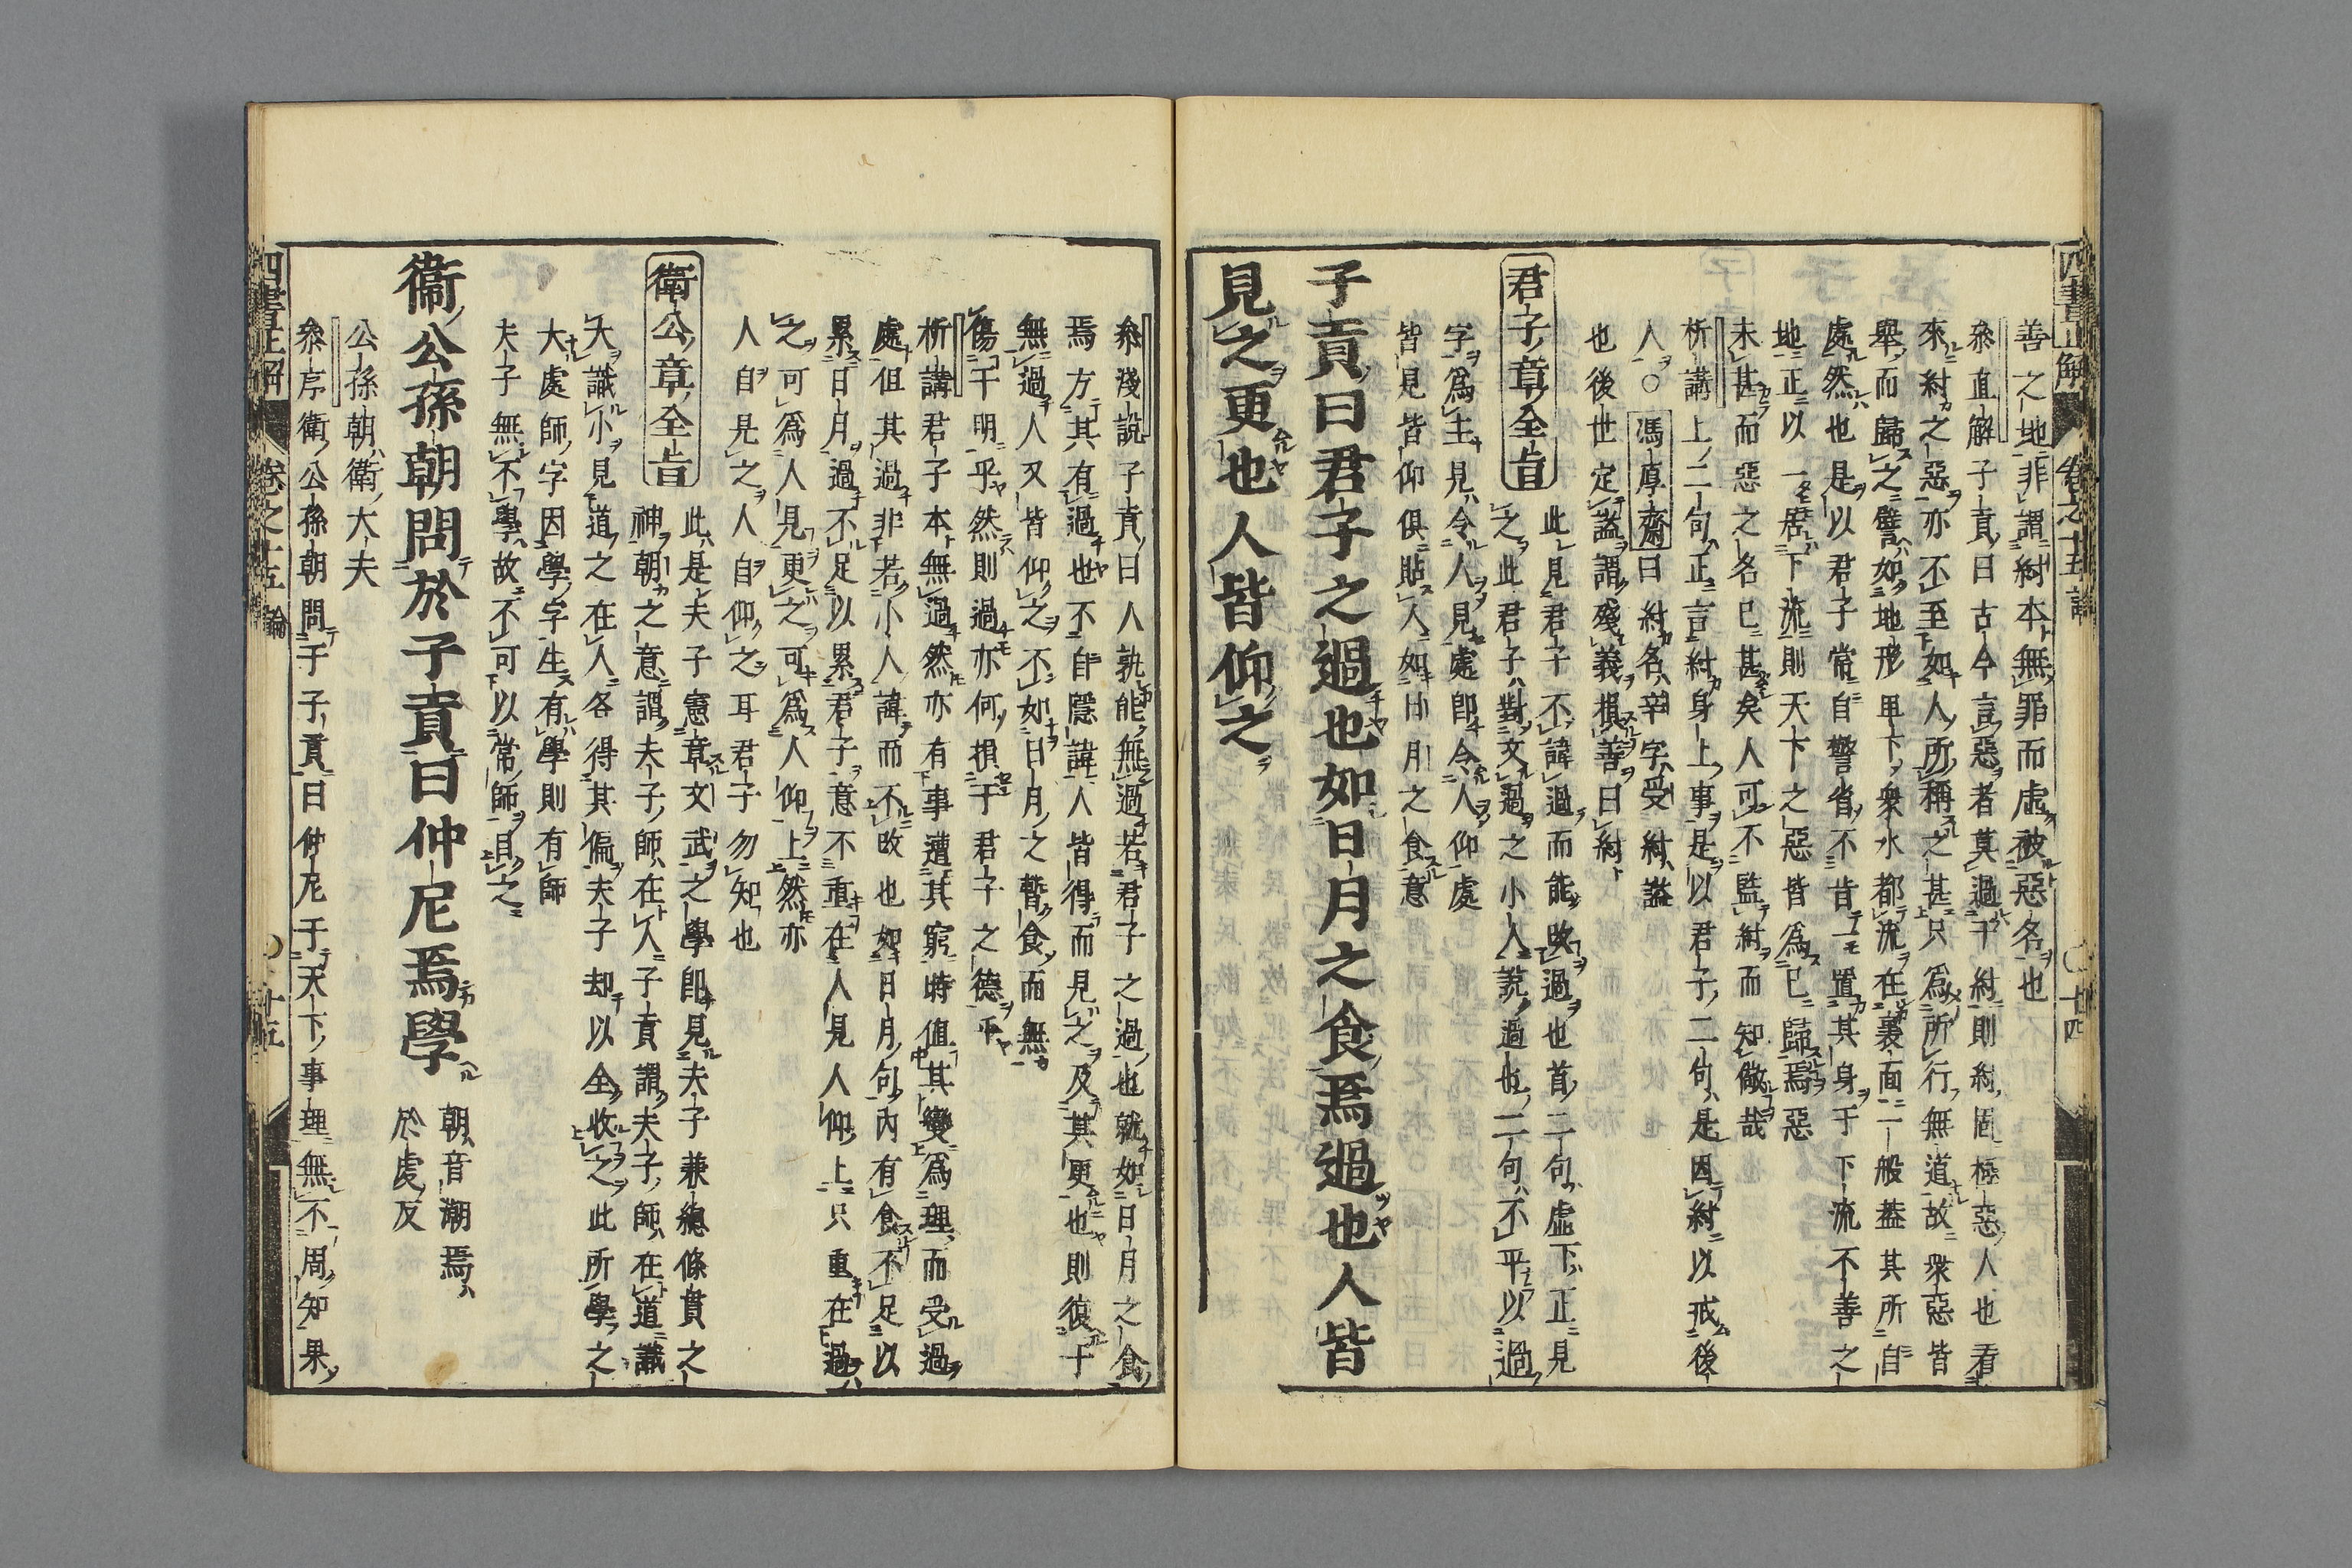 四書正解 卷之十五 論 ○十四
善之地非謂紂本無罪而虛被惡名也
叅直解子貢曰古今言惡者莫過于紂則紂固極惡人也看
來紂之惡亦不至如人所稱之甚只爲所行無道故衆惡皆
舉而歸之譬如地形卑下衆水都流在裏面一般蓋其所自
處然也是以君子常自警省不肯一置其身于下流不善之
地正以一居下流則天下之惡皆爲已歸焉惡
未甚而惡之名已甚矣人可不監紂而知儆哉
析講上二句正言紂身上事是以君子二句是因紂以戒後
人○馮厚齋曰紂名辛字受紂謚
也後世定謚謂殘義損善曰紂
君子章全旨
此見君子不諱過而能改過也首二句虛下正見
之此君子對文過之小人說過也二句不平以過
字爲主見令人見處卽令人仰處
皆見皆仰俱貼人如日月之食意
子貢曰君子之過也如日月之食焉過也人皆
見之更也人皆仰之
叅淺說子貢曰人孰能無過若君子之過也就如日月之食
焉方其有過也不自隱諱人皆得而見之及其更也則復于
無過人又皆仰之不如日月之暫食而無
傷于明乎然則過亦何損于君子之德乎
析講君子本無過然亦有事遭其窮時值其變爲理而受過
處但其過非若小人諱而不改也如日月句內有食不足以
累日月過不足以累君子意不重在人見人仰上只重在過
之可爲人見更之可爲人仰上然亦
人自見之人自仰之耳君子勿知也
衛公章全旨
此是夫子憲章文武之學卽見夫子兼總條貫之
神朝之意謂夫子師在人子貢謂夫子師在道識
大識小見道之在人各得其偏夫子却以全收之此所學之
大處師字因學字生有學則有師
夫子無不學故不可以常師目之
衞公孫朝問於子貢曰仲尼焉學
朝音潮焉
於虔反
公孫朝衛大夫
叅序衛公孫朝問于子貢曰仲尼于天下事理無不周知果
四書正解 卷之十五 論 ○十五